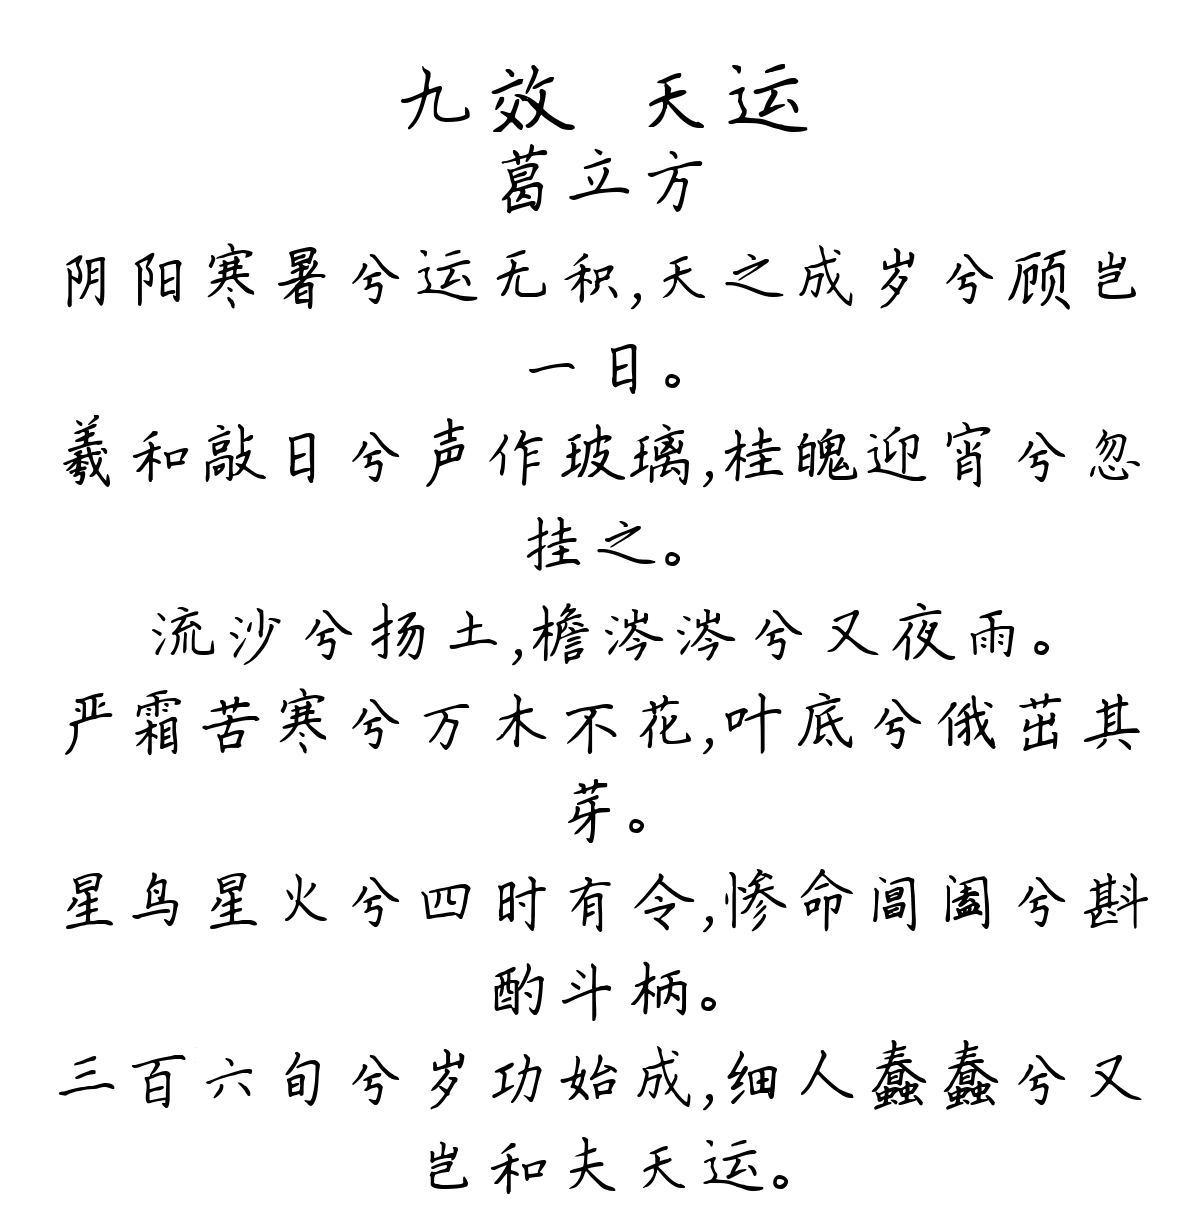 九效 天运
葛立方
阴阳寒暑兮运无积,天之成岁兮顾岂
一日。
羲和敲日兮声作玻璃,桂魄迎宵兮忽
挂之。
流沙兮扬土,檐涔涔兮又夜雨。
严霜苦寒兮万木不花,叶底兮俄茁其
芽。
星鸟星火兮四时有令,惨命阊阖兮斟
酌斗柄。
三百六旬兮岁功始成,细人蠢蠢兮又
岂和夫天运。